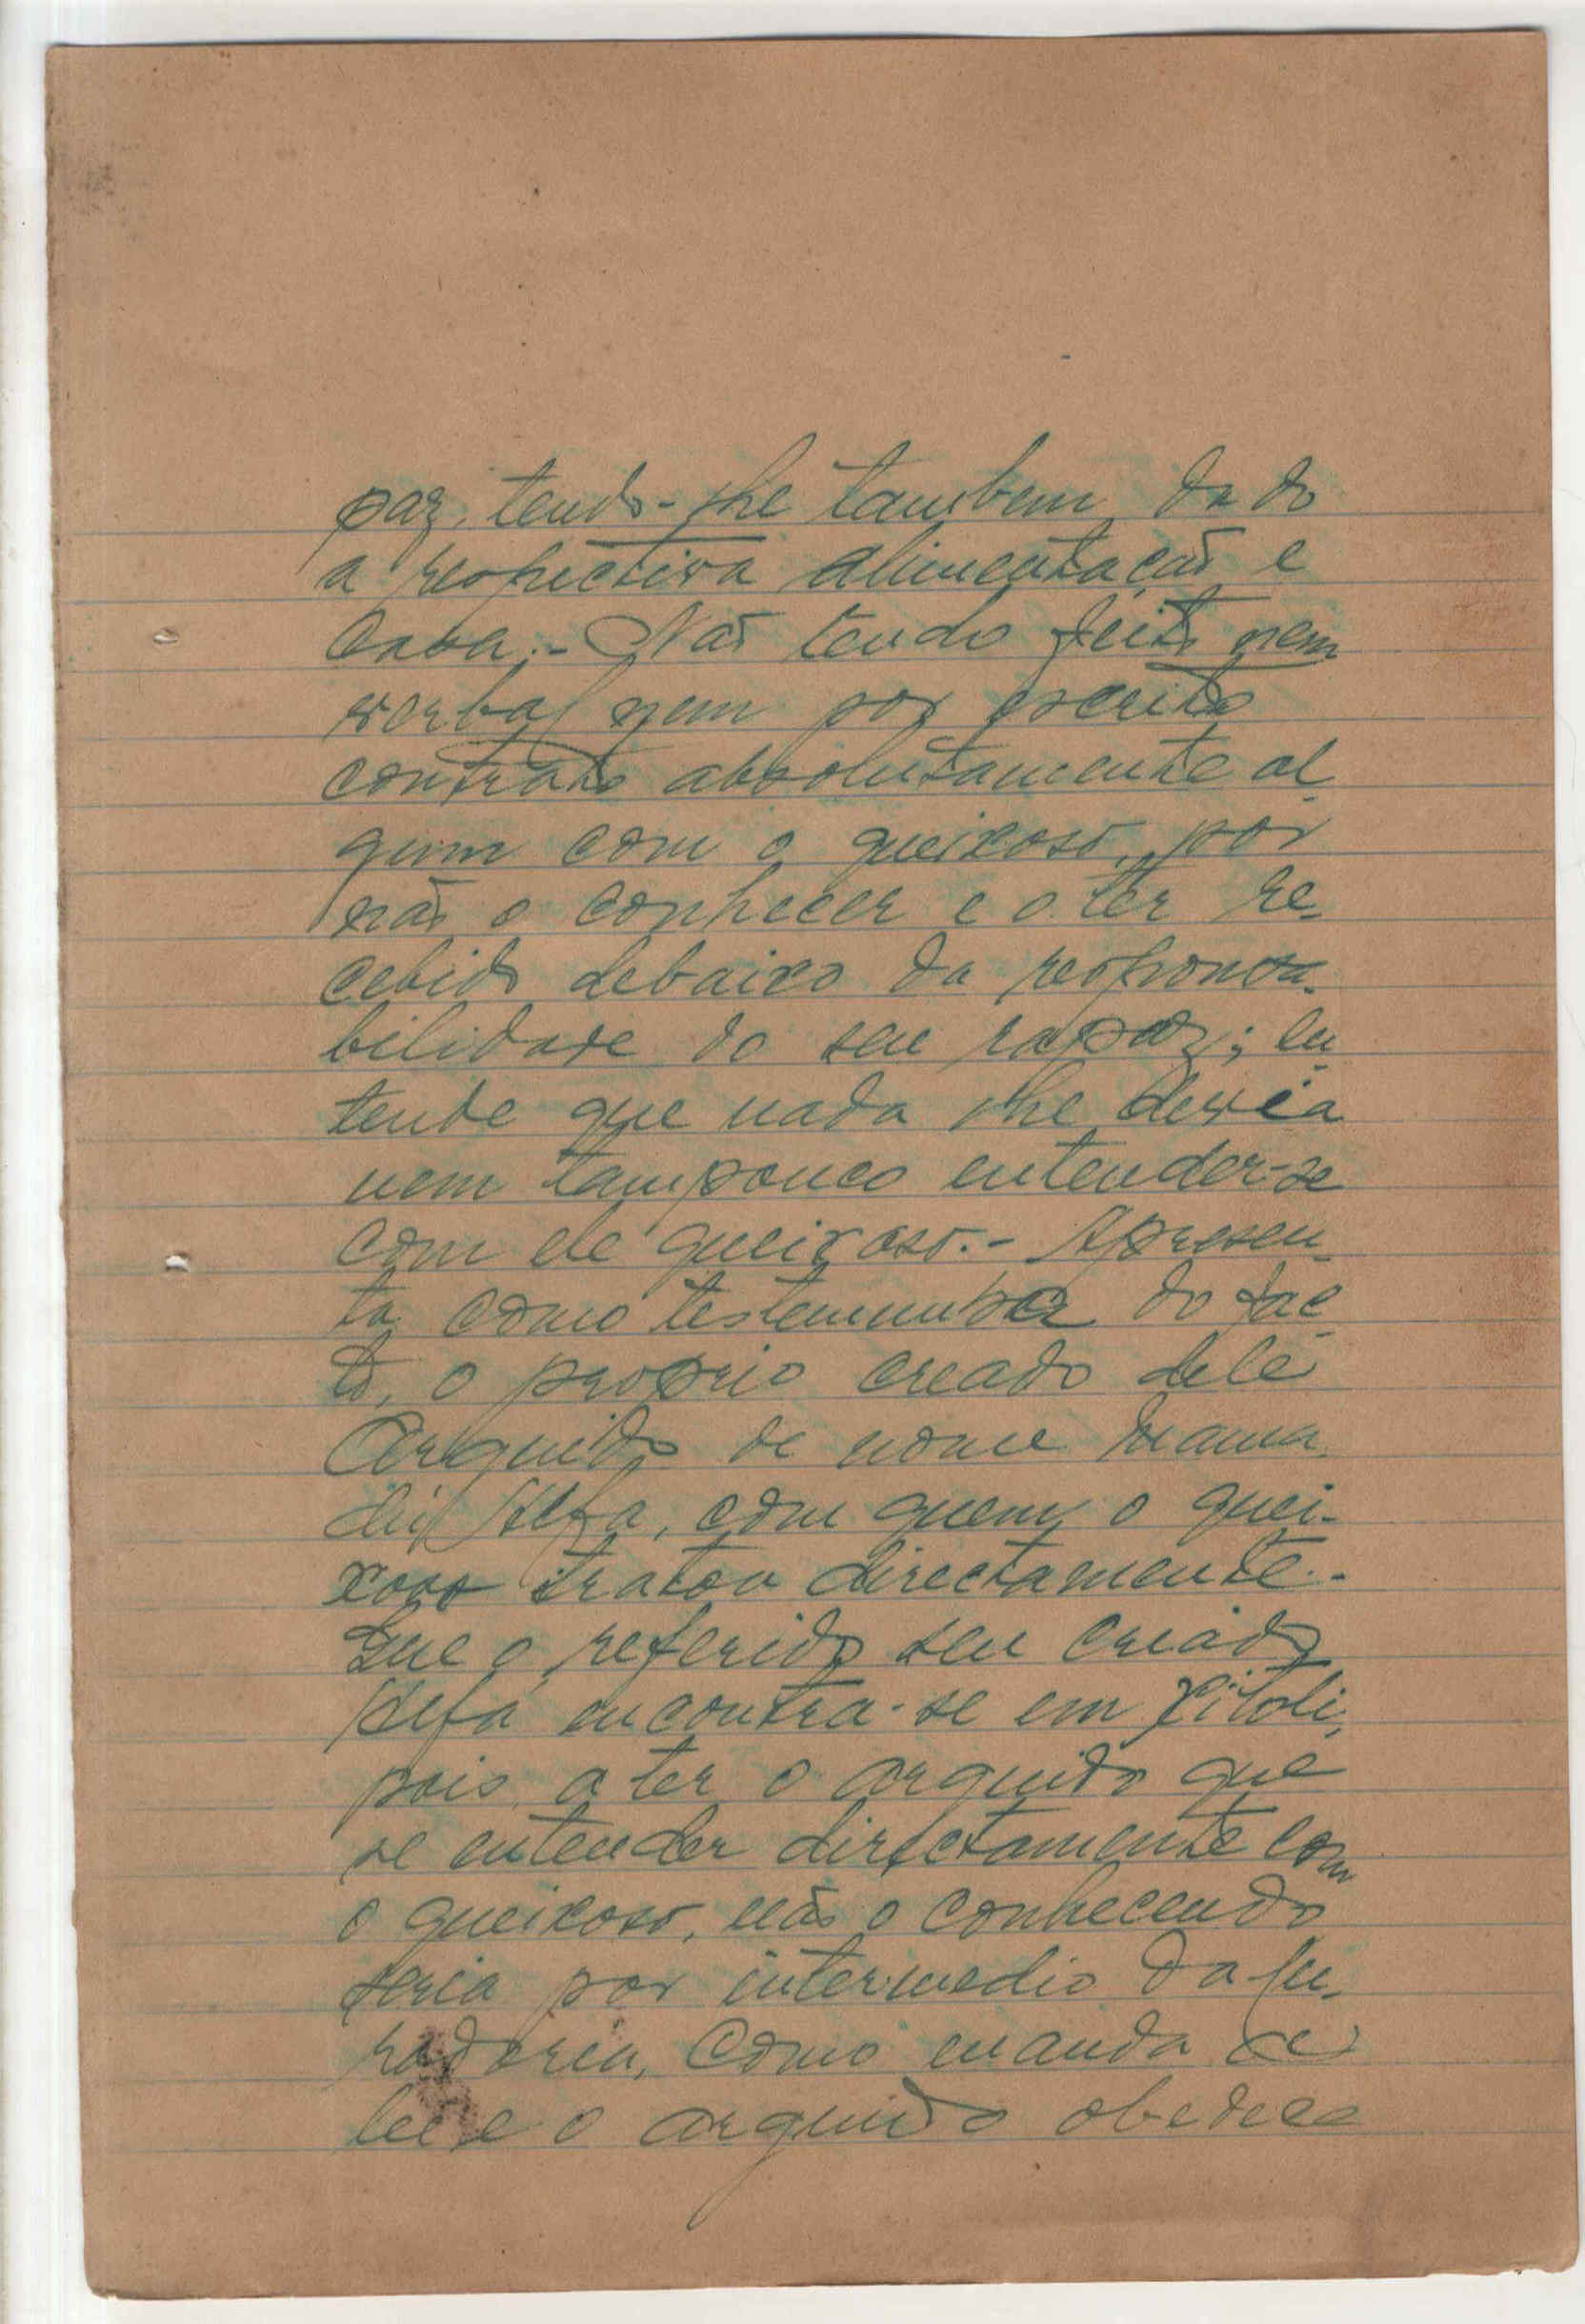 paz, tendo-lhe tambem dado
a respectiva alimentação e
casa.- Não tendo feito nem
verbal nem por escrito
contrato absolutamente al
gum com o queixoso, por
não o conhecer e o ter re-
cebido debaixo da responsa-
bilidade do seu rapaz; en
tende que nada lhe devia
nem tampouco entender-se
com ele queixoso.- Apresen-
ta como testemunha do fac
to, o proprio creado dele
Arguido de nome Mama
dú Alfa, com quem o quei-
xoso tratou directamente.-
Que o referido seu criado
Alfa encontra-se em Pitoli,
pois a ter o arguido que
se entender directamente com
o queixoso, não o conhecendo
seria por intermedio da Cu-
radoria, como manda a
lei e o arguido obedece